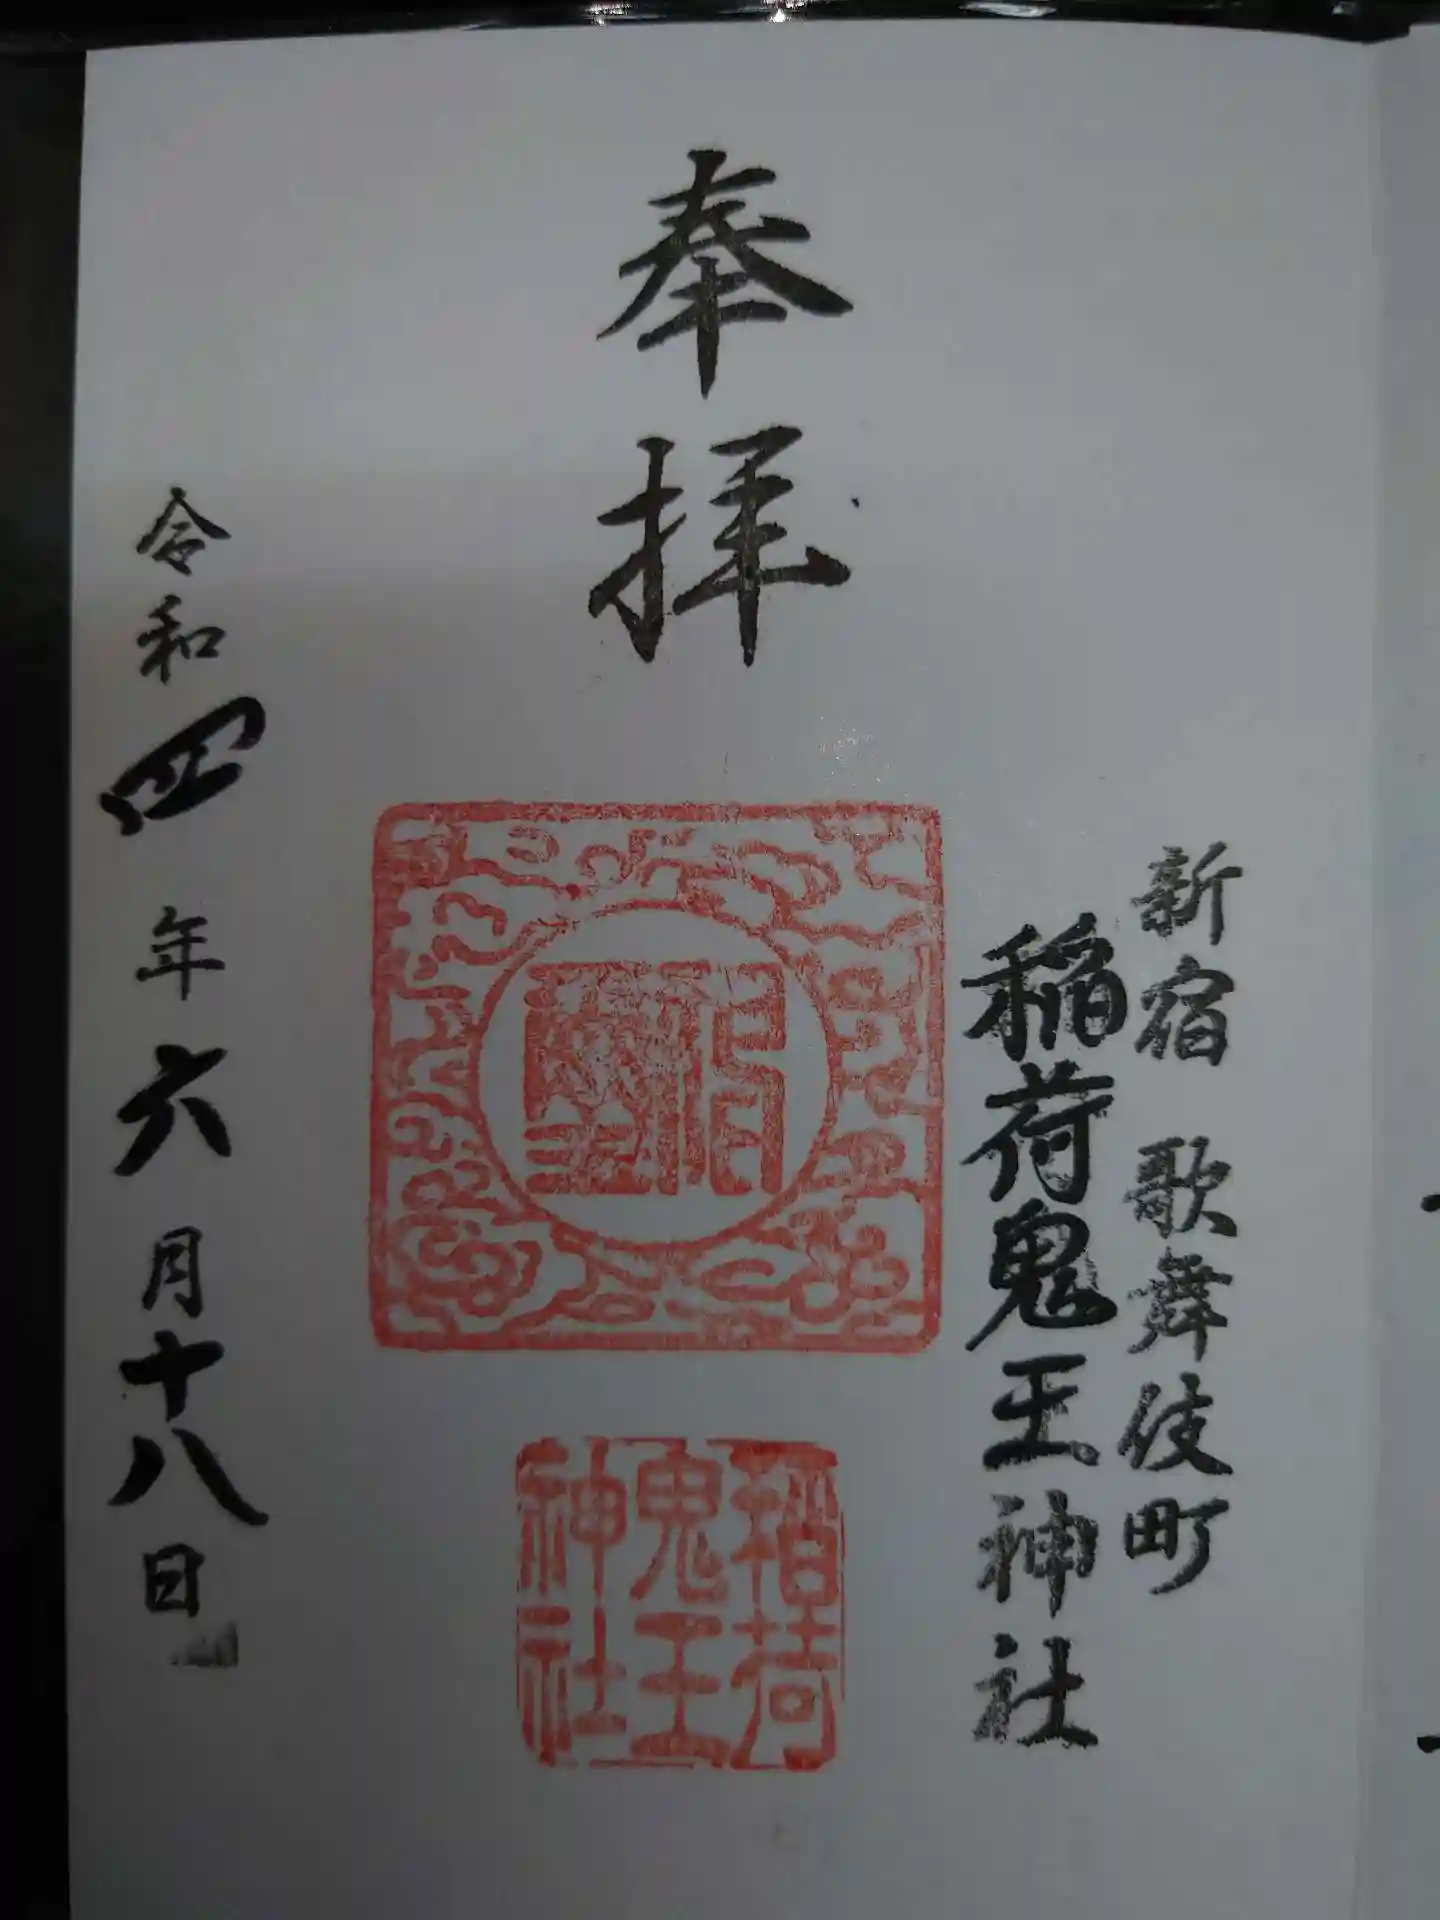 奉拝
新宿 歌舞伎町
稲荷鬼王神社
稲荷
鬼王
神社
令和四年六月十八日